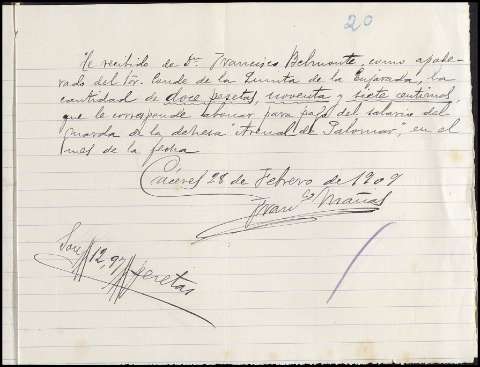 20
He recibido de Dn. Francisco Belmonte, como apode-
rado del Sor. Conde de la Quinta de la Enjarada, la
cantidad de doce pesetas, noventa y siete centimos,
que le corresponde abonar para pago del salario del
Guarda de la dehesa "Arenal de Palomar", en el
mes de la fecha
Cáceres 28 de Febrero de 1909
Franco Mañas
Son 12,97 pesetas